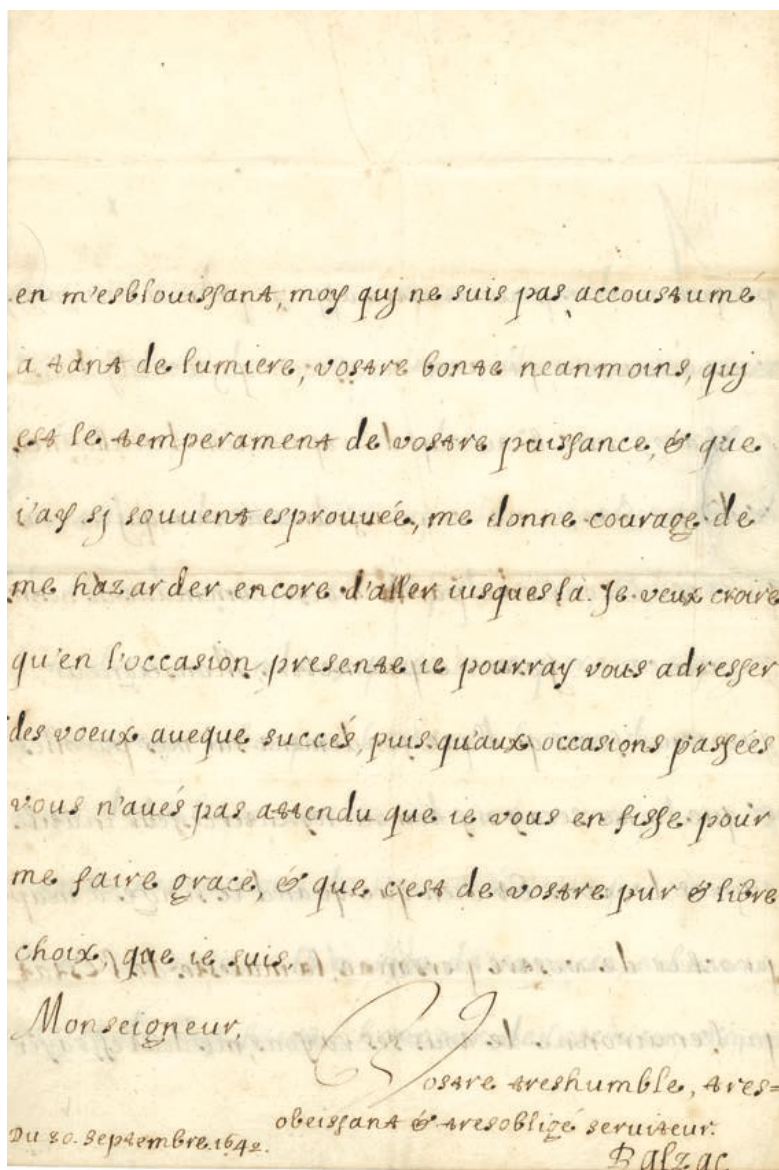 en m'esblouissant, moy quj ne suis pas accoustumé
a tant de lumiere, vostre bonte neanmoins, quj
est le temperament de vostre puissance, & que
i'ay sj souuent esprouuée, me donne courage de
me hazarder encore d'aller iusques la. Je veux croire
qu'en l'occasion presente ie pourray vous adresser
des voeux aueque succés, puis qu'aux occasions passées
vous n'aués pas attendu que ie vous en fisse pour
me faire grace, & que c'est de vostre pur & libre
choix, que ie suis,
Monseigneur,
Vostre treshumble, tres=
obeissant & tresobligé seruiteur.
Du 20. septembre. 1642.
Balzac